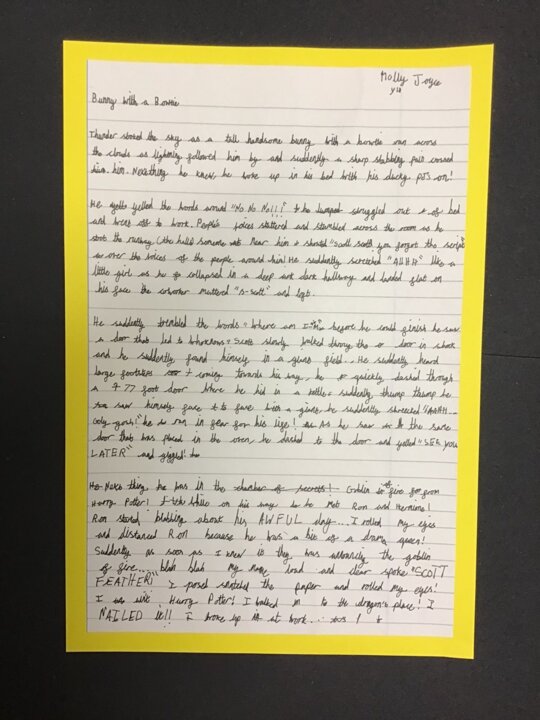 Molly Joyce
y4
Bunny with a Bowtie
Thunder stormed the sky as a tall handsome bunny with a bowtie ran across
the clouds as lightning followed him by and suddenly a sharp stabbing pain crossed
him. Next thing he knew he woke up in his bed with his ducky PJS on!
He yelled the words around "No No No!!!" he struggled out of bed
and off to work. People's voices stuttered and stambled across the room as he
the (the halls) someone near him shouted "Scott scott you forgot the script
over the voices of the people around him! He suddenly screeched "AHHH" like a
little girl as he collapsed in a deep dark hallway and landed flat on
his face the coworker muttered "S-Scott" and left.
He suddenly trembled the words "Where am I" before he could finish he saw
a door that led to Scott slowly walked through the door in shock
and he suddenly found himself in a field. He suddenly heard
large footsteps coming towards his way, he quickly dashed through
a 977 foot door where he hid in a suddenly thump thump he
saw himself face to face with a he suddenly shrecked "AAHH
gosh!" he ran in fear for his life! As he saw the same
door that was placed in the oven, he dashed to the door and yelled "SEE YOU
LATER" and giggled!
thing he was in the chamber of secrets! Goblin of fire from
Harry Potter! while on his way he met Ron and Hermine!
Ron started blabbing about his AWFUL day... I rolled my eyes
and distanced Ron because he was a bit of a drama queen!
Suddenly as soon as I knew it they was the goblin
of fire... blah blah my name loud and clear spoke "SCOTT
FEATHER" I posed snatched the paper and rolled my eyes!
I was Harry Potter! I walked in to the dragon's place! I
NAILED it!! I woke up at work...